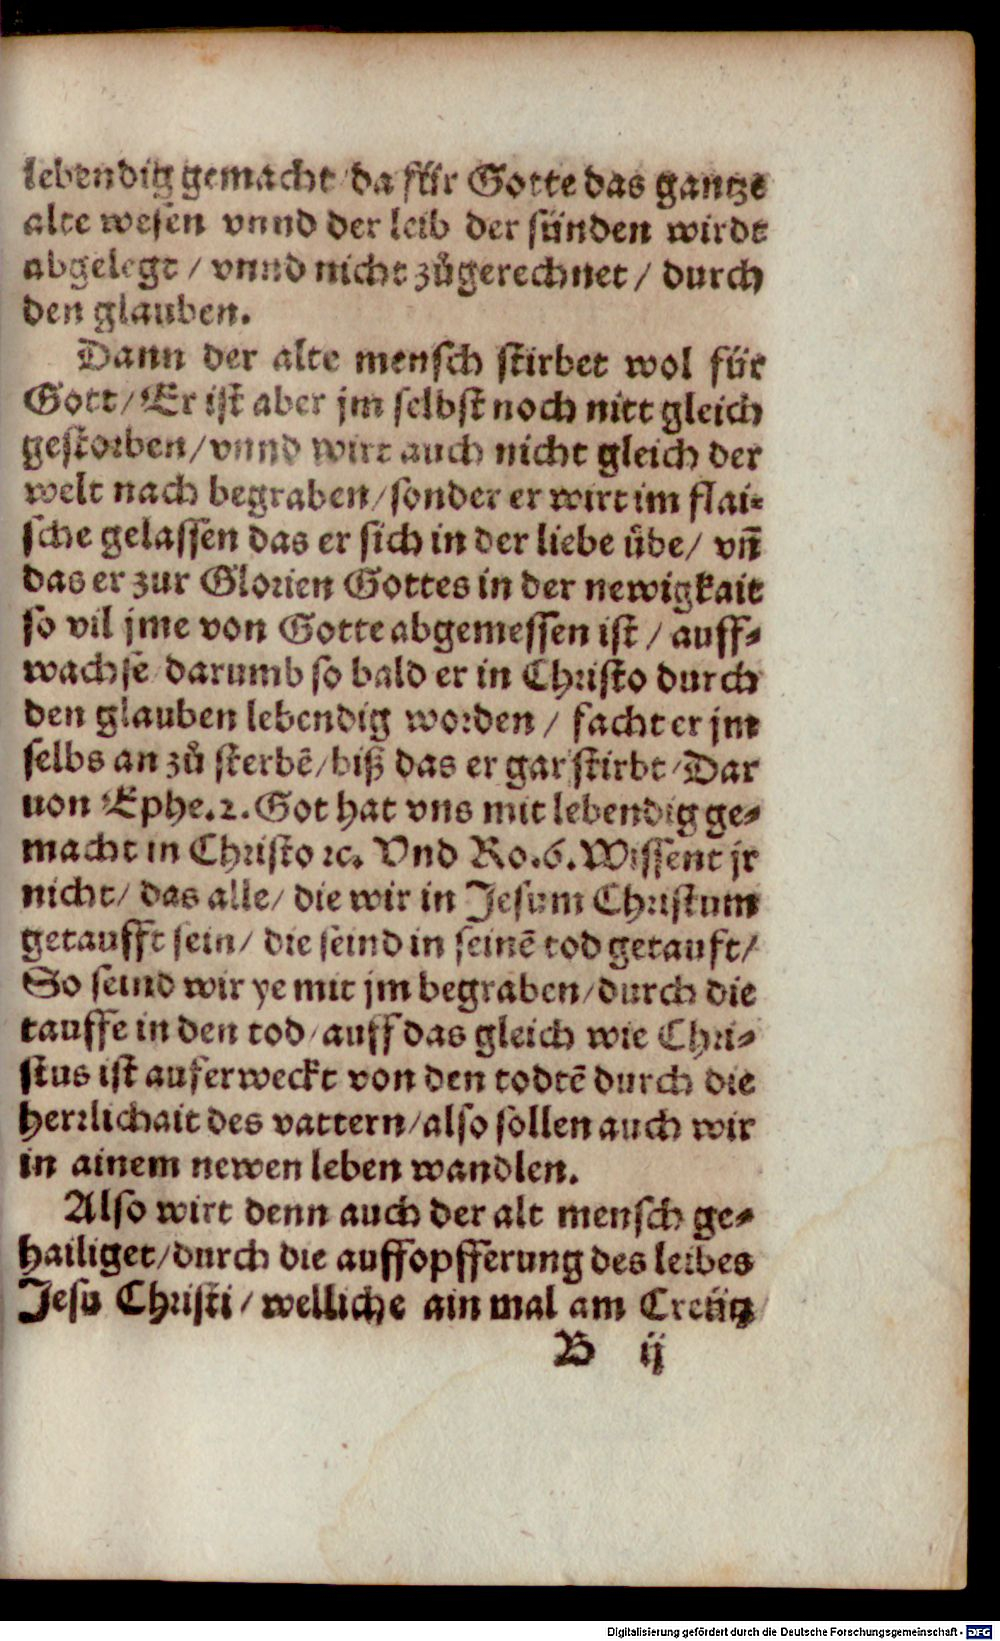 lebendig gemacht / da für Gotte das gantze
alte wesen vnnd der leib der sünden wirdt
abgelegt / vnnd nicht zůgerechnet / durch
den glauben.
Dann der alte mensch stirbet wol für
Gott / Er ist aber jm selbst noch nitt gleich
gestorben / vnnd wirt auch nicht gleich der
welt nach begraben / sonder er wirt im flai-
sche gelassen das er sich in der liebe übe / vñ
das er zur Glorien Gottes in der newigkait
so vil jme von Gotte abgemessen ist / auff-
wachse / darumb so bald er in Christo durch
den glauben lebendig worden / facht er jm
selbs an zů sterbē / biß das er gar stirbt / Dar
uon Ephe. 2. Got hat vns mit lebendig ge-
macht in Christo ꝛc. Vnd Ro. 6. Wissent jr
nicht / das alle / die wir in Jesum Christum
getaufft sein / die seind in seinē tod getauft /
So seind wir ye mit jm begraben / durch die
tauffe in den tod / auff das gleich wie Chri-
stus ist auferweckt von den todtē durch die
herrlichait des vattern / also sollen auch wir
in ainem newen leben wandlen.
Also wirt denn auch der alt mensch ge-
hailiget / durch die auffopfferung des leibes
Jesu Christi / welliche ain mal am Creütz
B ij
Digitalisierung gefördert durch die Deutsche Forschungsgemeinschaft - DFG